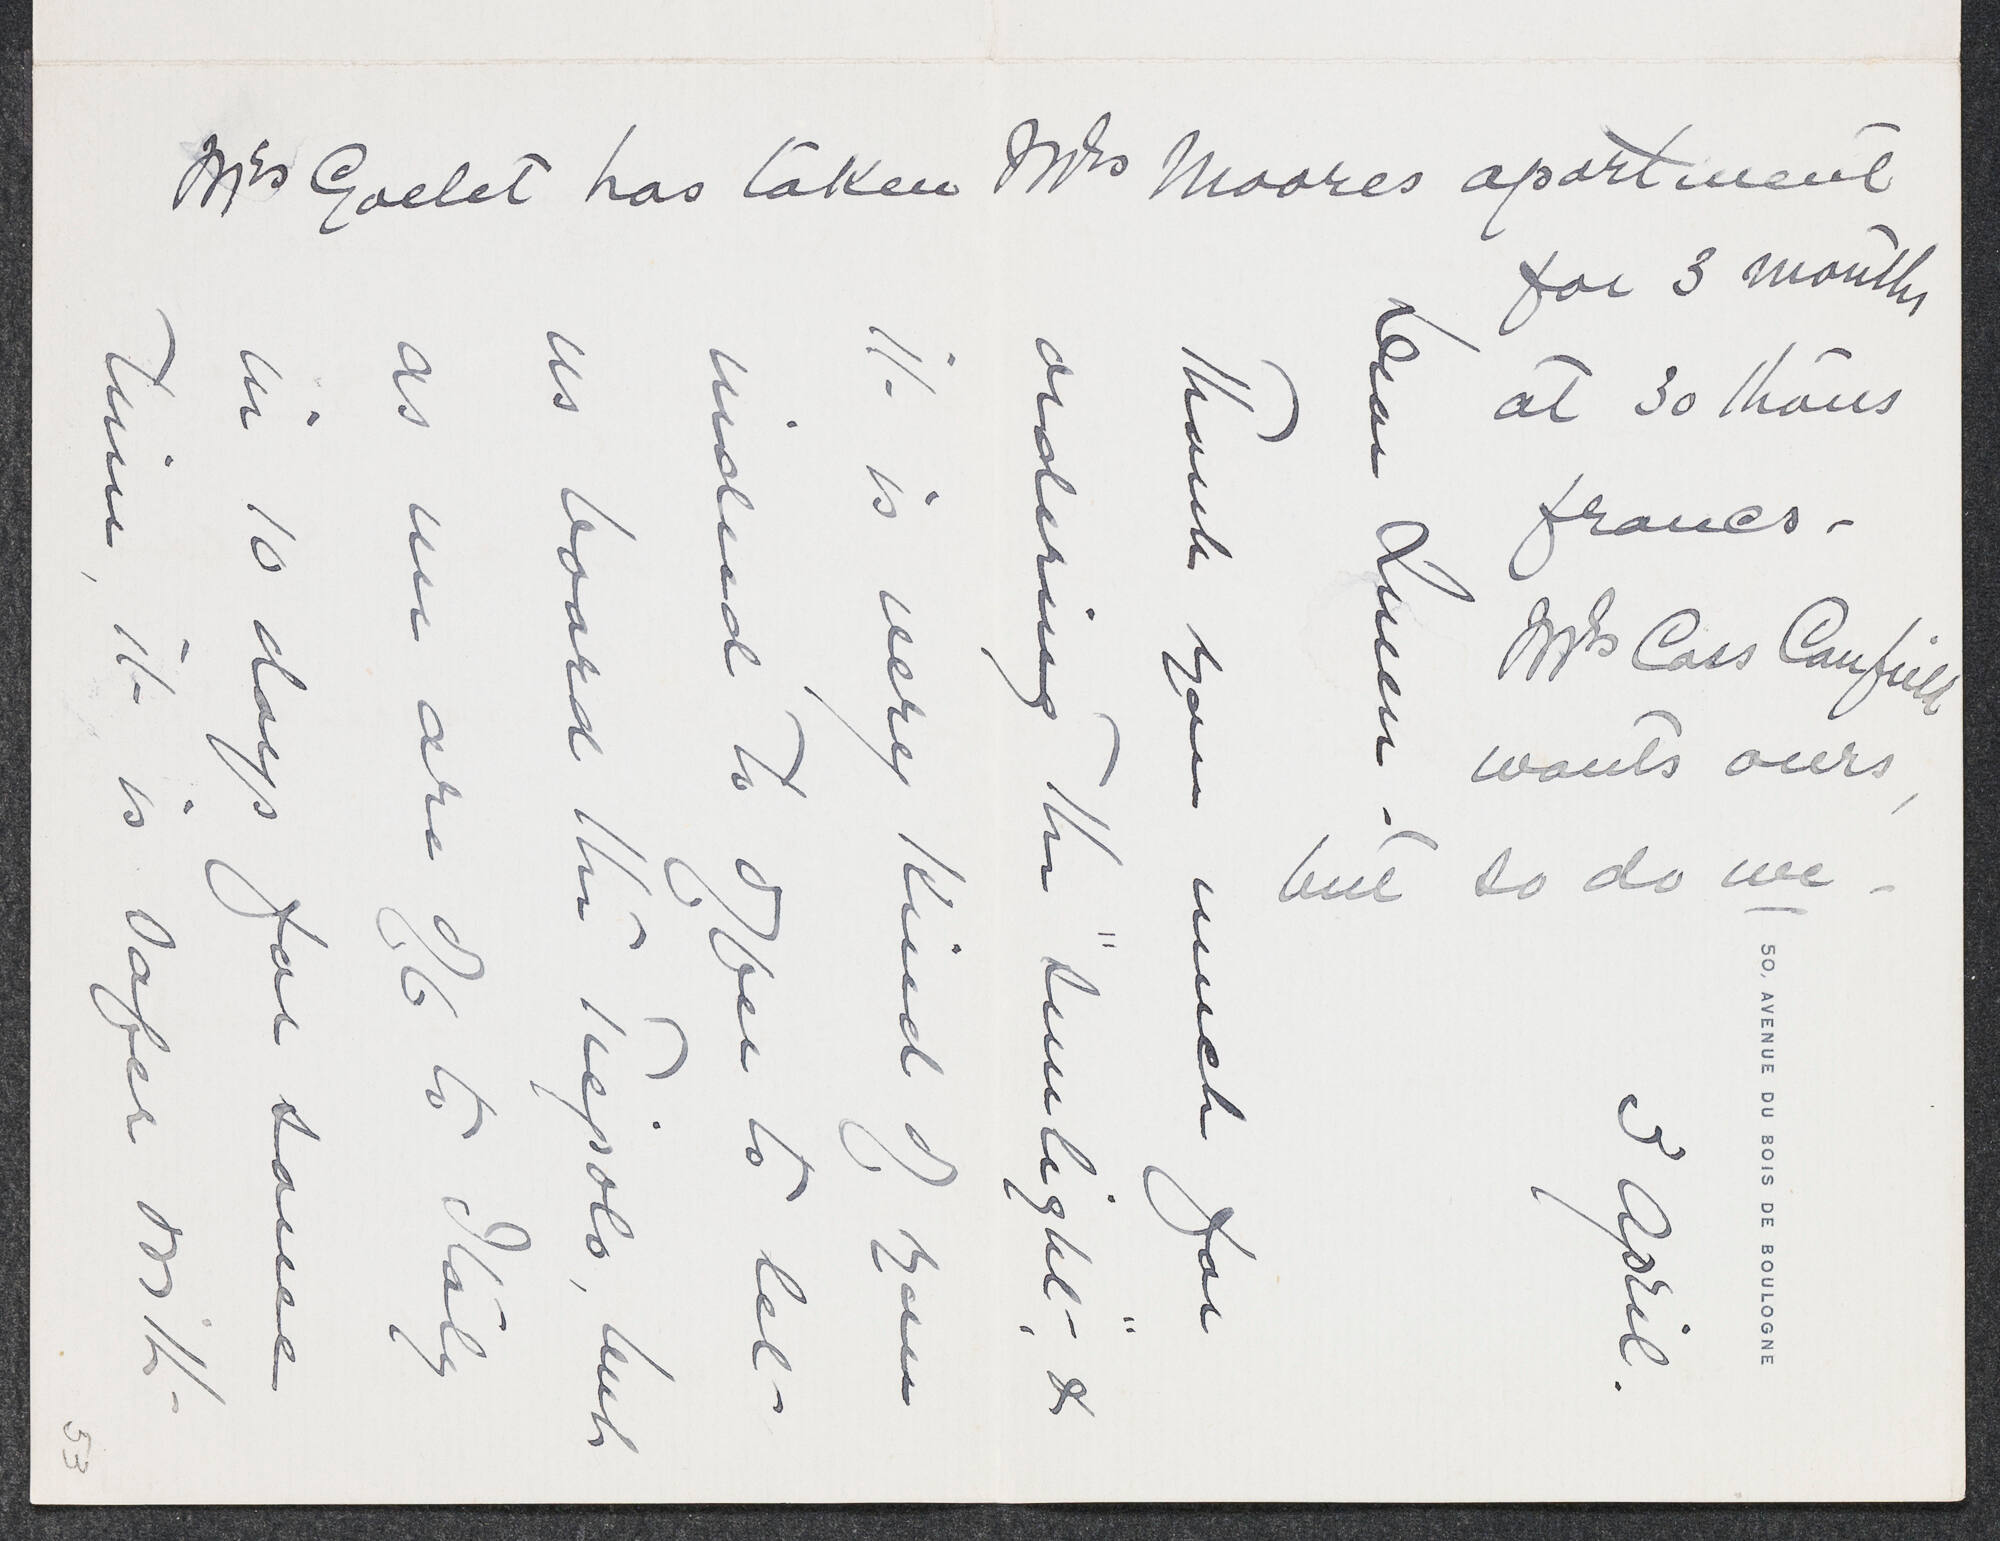 Mrs Goelet has taken Mrs Moores apartment
for 3 months
at 30 thous
francs -
Mrs Cass Canfield
wants ours,
but so do we -
50, AVENUE DU BOIS DE BOULOGNE
April.
Dear Queen -
Thank you much for
ordering the "sunlight", &
it is very kind of you
indeed to offer to let
us board the Tiepolo, but
as we are off to Italy
in 10 days for some
time, it is safer with
53